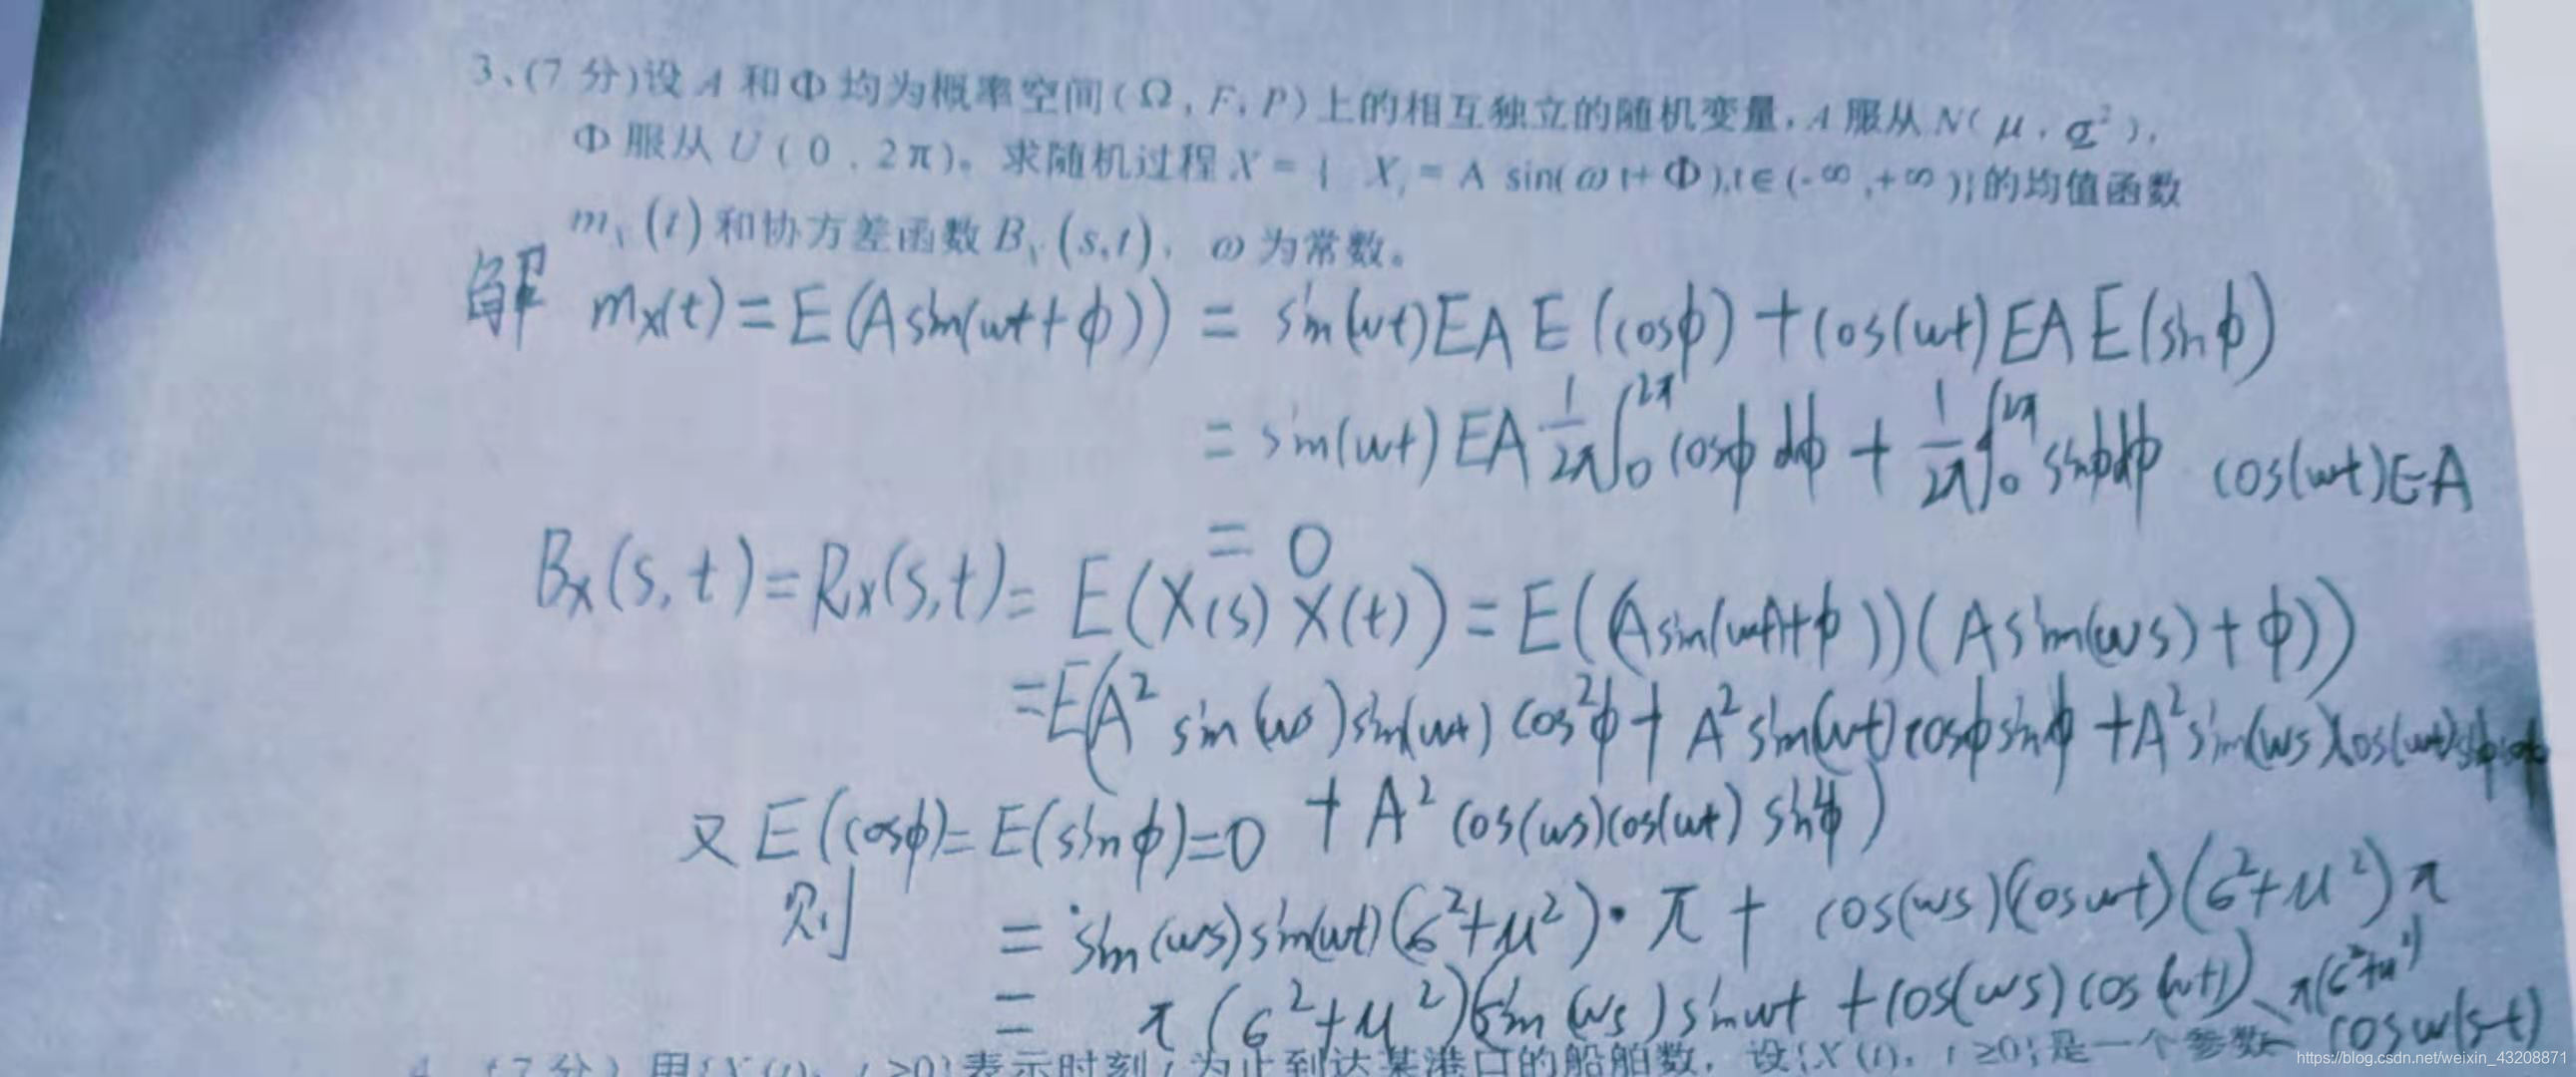 3、(7 分)设 A 和 Φ 均为概率空间(Ω,F,P)上的相互独立的随机变量,A 服从 N(μ,σ²),
Φ 服从 U(0,2π)。求随机过程 X={ Xₜ=A sin(ωt+Φ),t∈(-∞,+∞)}的均值函数
mₓ(t)和协方差函数Bₓ(s,t), ω为常数。
解 mx(t)=E(Asin(wt+φ)) = sin(wt)EA E(cosφ)+cos(wt)EA E(sinφ)
= sin(wt) EA 1/2π ∫₀^2π cosφ dφ + 1/2π ∫₀^2π sinφdφ cos(wt)EA
= 0
Bx(s,t)=Rx(s,t)= E(X(s)X(t))=E((Asin(wt+φ))(Asin(ws)+φ))
=E(A² sin(ws)sin(wt) cos²φ+ A²sin(wt)cosφsinφ +A²sin(ws)cos(wt)
+ A² cos(ws)cos(wt) sin²φ)
又 E(cosφ)=E(sinφ)=0
则 = sin(ws)sin(wt)(6²+μ²)·π + cos(ws)(coswt)(6²+μ²)π
= π(6²+μ²)(sin(ws)sinwt +cos(ws)cos(wt)) = π(6²+μ²)
cosw(s-t)
4、(7分) 用{X(t), t≥0}表示时刻 t 为止到达某港口的船舶数, 设{X(t), t≥0}是一个参数
https://blog.csdn.net/weixin_43208871